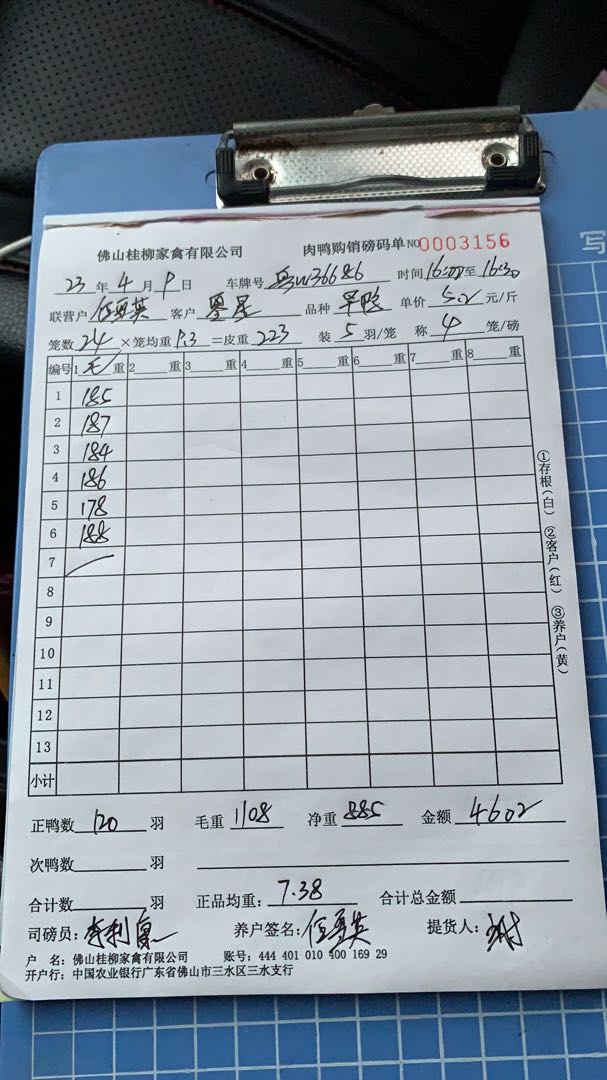 佛山桂柳家禽有限公司 肉鸭购销磅码单 NO 0003156
23 年 4 月 9 日 车牌号 粤W36686 时间 16:00 至 16:30
联营户 伍勇英 客户 墨星 品种 旱鸭 单价 5.2 元/斤
笼数 24 ×笼均重 9.3 =皮重 223 装 5 羽/笼 称 4 笼/磅
编号 1 毛 重 2 重 3 重 4 重 5 重 6 重 7 重 8 重
1 185
2 187
3 184
4 186
5 178
6 188
7
8
9
10
11
12
13
小计
①存根(白) ②客户(红) ③养户(黄)
正鸭数 120 羽 毛重 1108 净重 885 金额 4602
次鸭数 羽
合计数 羽 正品均重: 7.38 合计总金额
司磅员: 养户签名: 伍勇英 提货人:
户 名: 佛山桂柳家禽有限公司 账号: 444 401 010 400 169 29
开户行: 中国农业银行广东省佛山市三水区三水支行
写